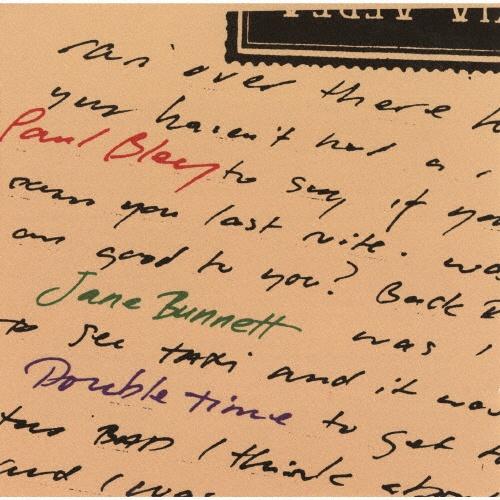 over there
you haven't had a
Paul Bley to say if you
you last nite.
good to you? Back
Jane Bunnett was
to see taxi and it was
Double time to get
too BAD I think
and I was